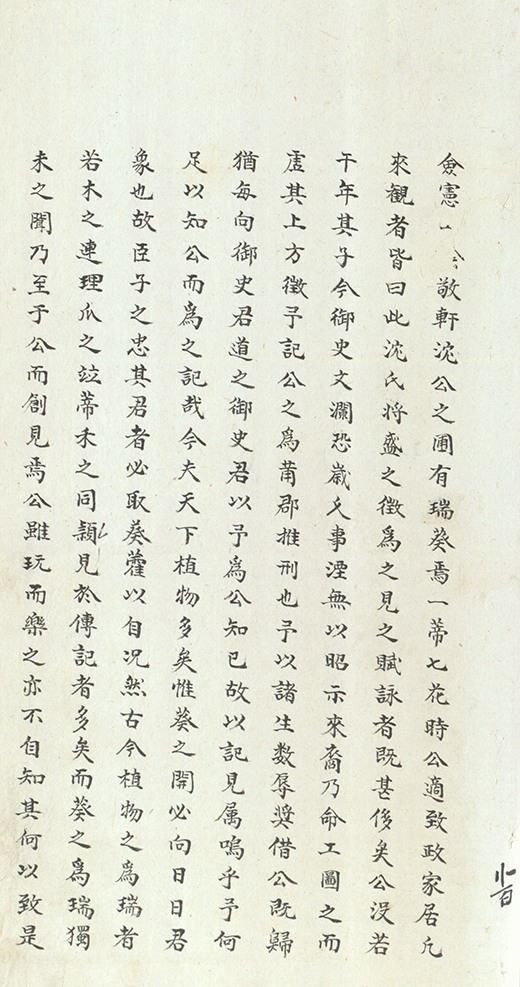 僉憲 敬軒沈公之圃有瑞葵焉一蒂七花時公適致政家居凡
來觀者皆曰此沈氏将盛之徵為之見之賦詠者既甚侈矣公沒若
干年其子今御史文瀾恐歲久事湮無以昭示來裔乃命工圖之而
虛其上方徵予記公之為莆郡推刑也予以諸生数辱奨借公既歸
猶每向御史君道之御史君以予為公知已故以記見属嗚乎予何
足以知公而為之記哉今夫天下植物多矣惟葵之開必向日日君
象也故臣子之忠其君者必取葵藿以自况然古今植物之為瑞者
若木之連理瓜之竝蒂禾之同穎見於傳記者多矣而葵之為瑞獨
未之聞乃至于公而創見焉公雖玩而樂之亦不自知其何以致是